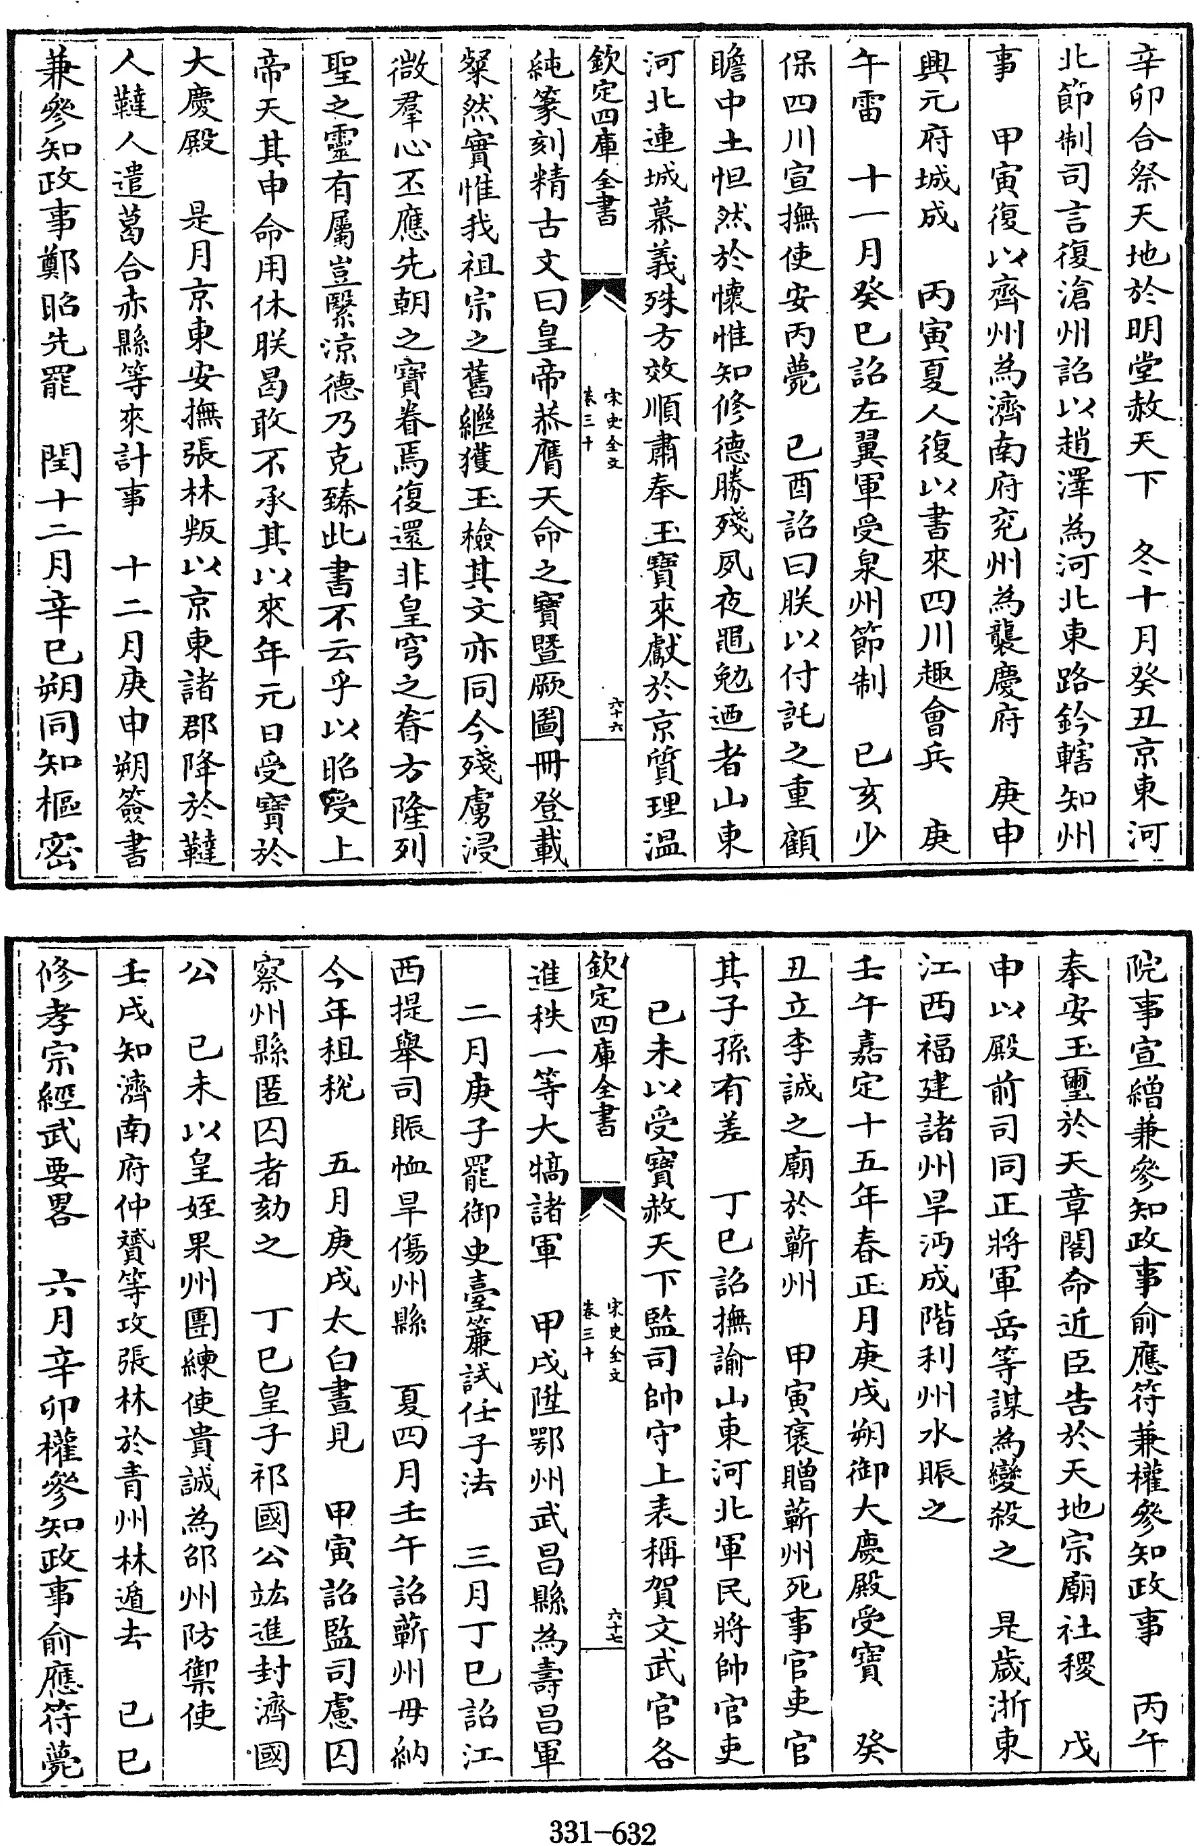 辛卯合祭天地於明堂赦天下　冬十月癸丑京東河
北節制司言復滄州詔以趙澤為河北東路鈐轄知州
事　甲寅復以齊州為濟南府兖州為襲慶府　庚申
興元府城成　丙寅夏人復以書來四川趣會兵　庚
午雷　十一月癸巳詔左翼軍受泉州節制　己亥少
保四川宣撫使安丙薨　己酉詔曰朕以付託之重顧
瞻中土怛然於懷惟知修德勝殘夙夜黽勉迺者山東
河北連城慕義殊方效順肅奉玉寶來獻於京質理温
欽定四庫全書　宋史全文　卷三十　六十六
純篆刻精古文曰皇帝恭膺天命之寶暨厥圖冊登載
粲然實惟我祖宗之舊繼獲玉檢其文亦同今殘虜浸
微羣心丕應先朝之寶眷焉復還非皇穹之眷方隆列
聖之靈有屬豈繄涼德乃克臻此書不云乎以昭受上
帝天其申命用休朕曷敢不承其以來年元日受寶於
大慶殿　是月京東安撫張林叛以京東諸郡降於韃
人韃人遣葛合赤縣等來計事　十二月庚申朔簽書
兼參知政事鄭昭先罷　閏十二月辛巳朔同知樞密
院事宣繒兼參知政事俞應符兼權參知政事　丙午
奉安玉璽於天章閣命近臣告於天地宗廟社稷　戊
申以殿前司同正將軍岳等謀為變殺之　是歲浙東
江西福建諸州旱沔成階利州水賑之
壬午嘉定十五年春正月庚戌朔御大慶殿受寶　癸
丑立李誠之廟於蘄州　甲寅褒贈蘄州死事官吏官
其子孫有差　丁巳詔撫諭山東河北軍民將帥官吏
己未以受寶赦天下監司帥守上表稱賀文武官各
欽定四庫全書　宋史全文　卷三十　六十七
進秩一等大犒諸軍　甲戌陞鄂州武昌縣為壽昌軍
二月庚子罷御史臺簾試任子法　三月丁巳詔江
西提舉司賑恤旱傷州縣　夏四月壬午詔蘄州毋納
今年租稅　五月庚戌太白晝見　甲寅詔監司慮囚
察州縣匿囚者劾之　丁巳皇子祁國公竑進封濟國
公　己未以皇姪果州團練使貴誠為邵州防禦使
壬戌知濟南府仲贇等攻張林於青州林遁去　己巳
修孝宗經武要畧　六月辛卯權參知政事俞應符薨
331-632